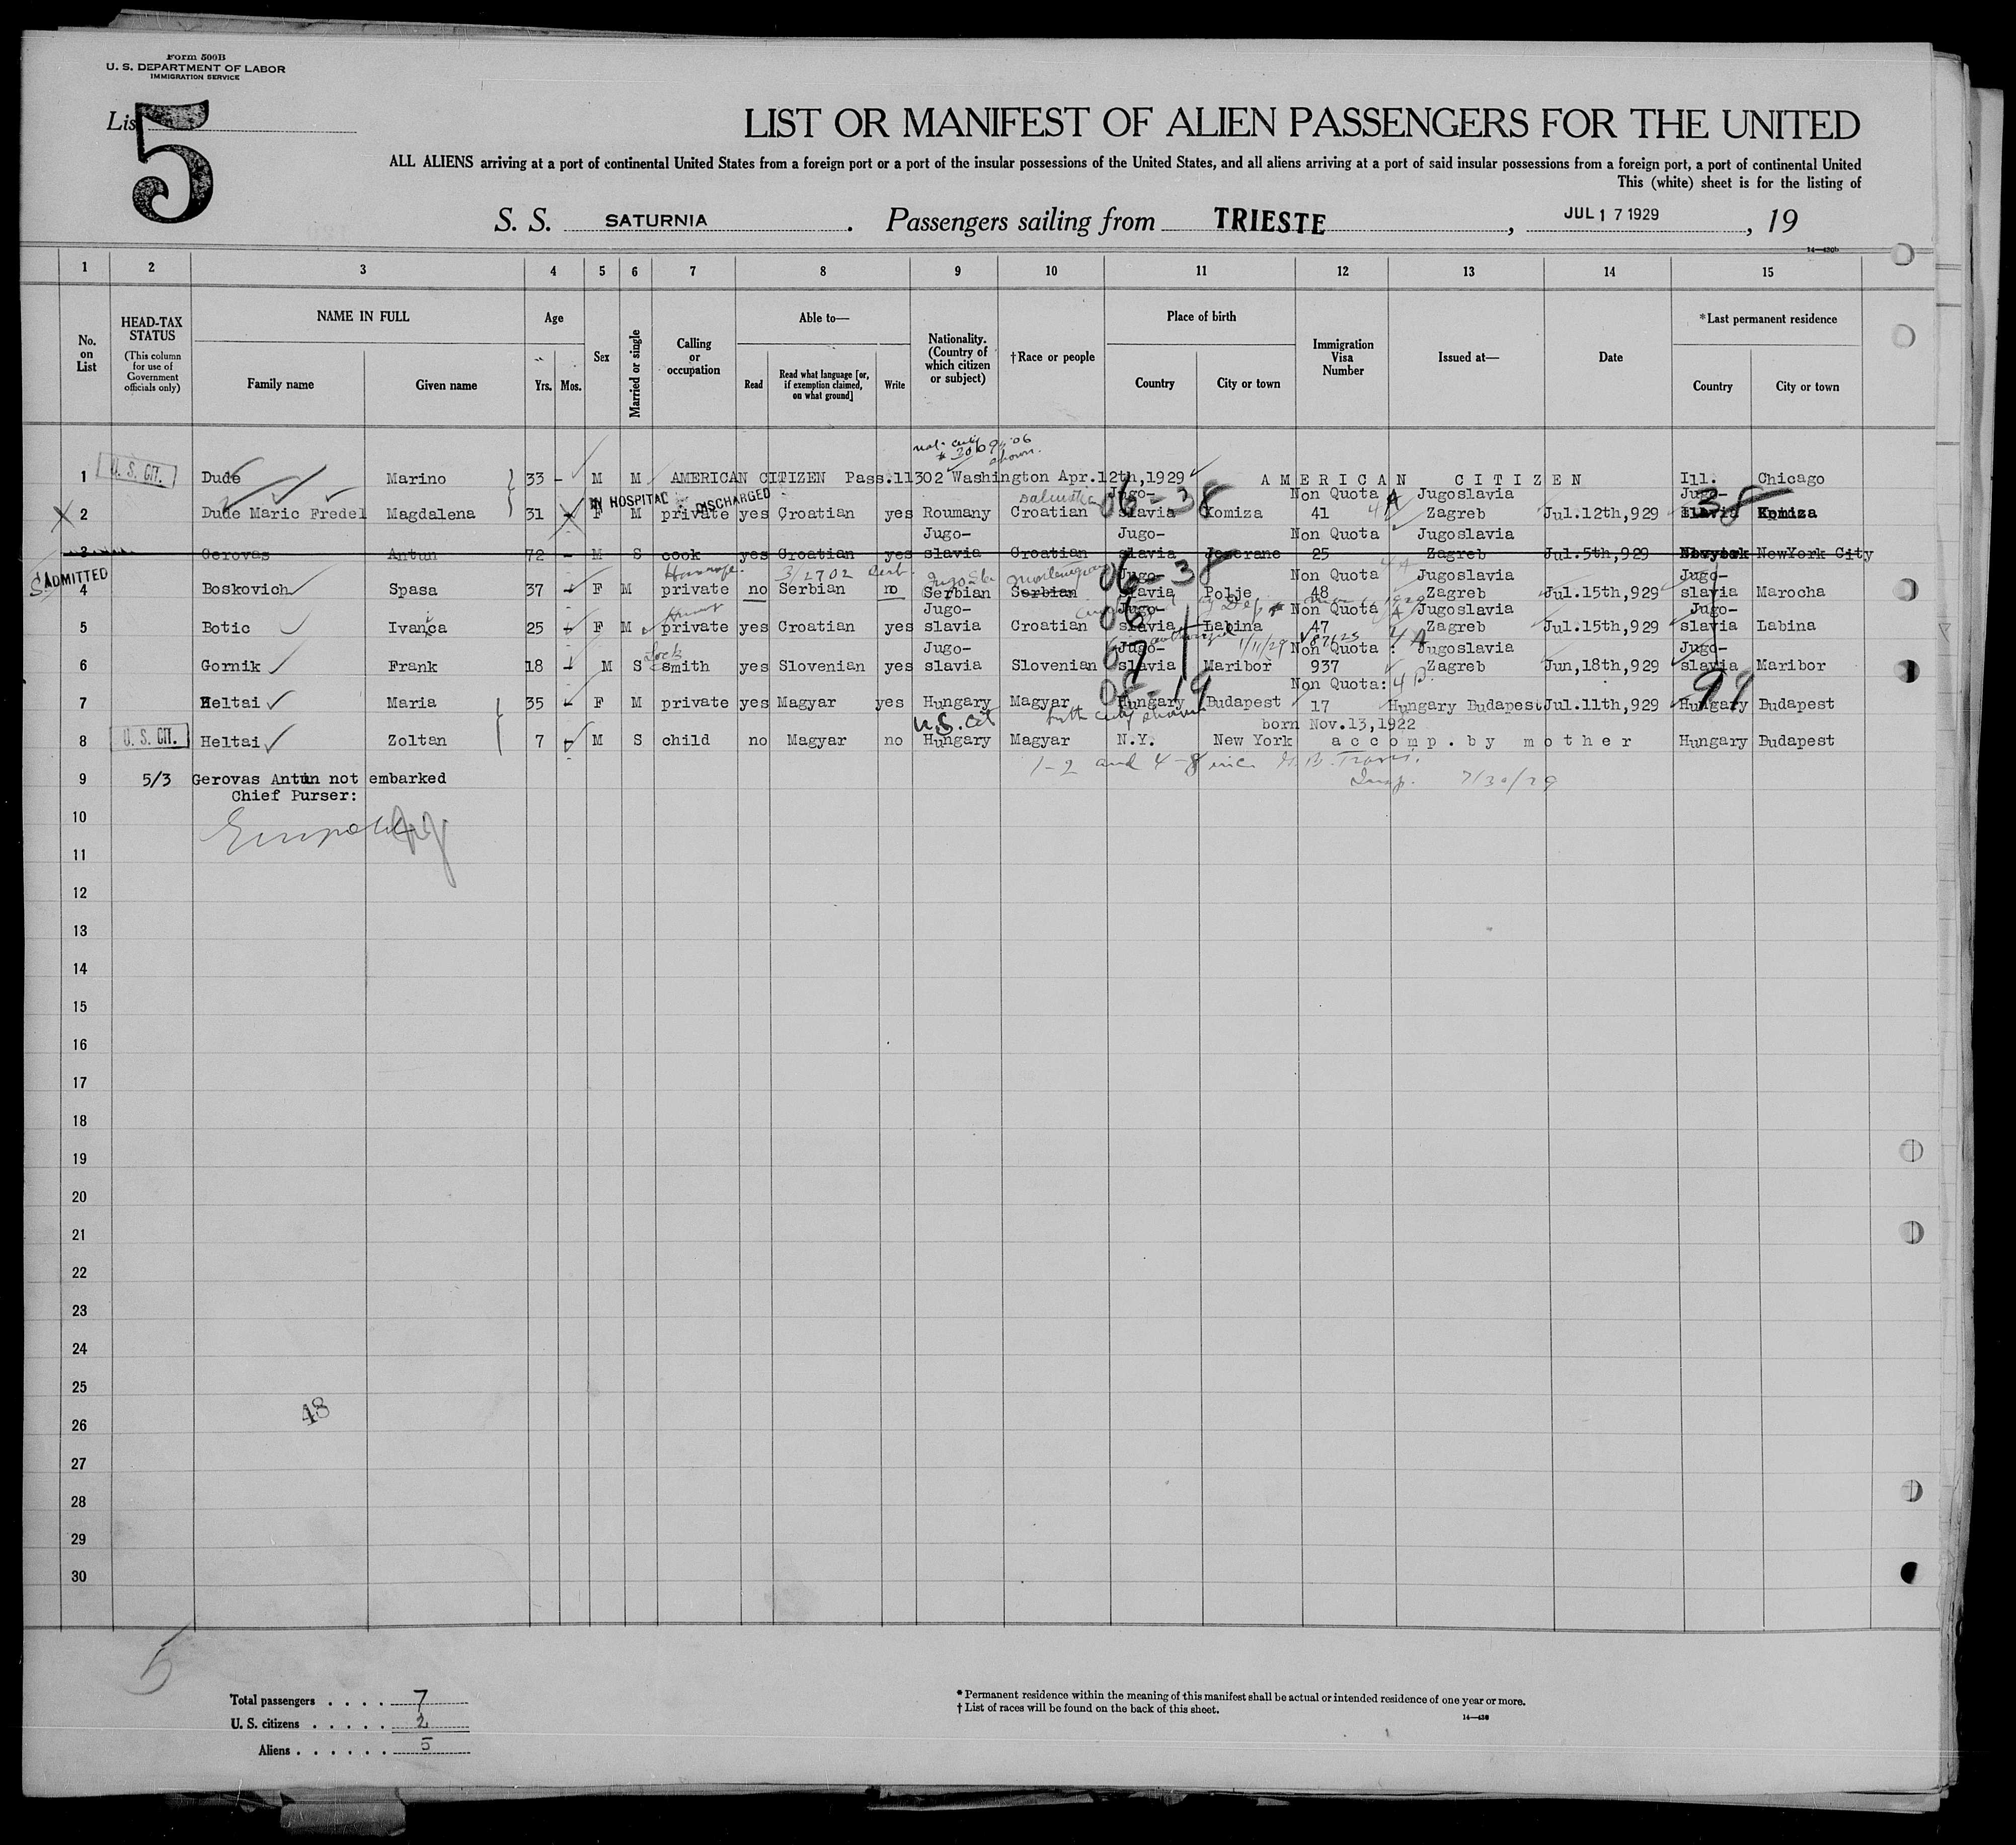 Form 500B
U. S. DEPARTMENT OF LABOR
IMMIGRATION SERVICE
Lis
5
LIST OR MANIFEST OF ALIEN PASSENGERS FOR THE UNITED
ALL ALIENS arriving at a port of continental United States from a foreign port or a port of the insular possessions of the United States, and all aliens arriving at a port of said insular possessions from a foreign port, a port of continental United
This (white) sheet is for the listing of
S. S. SATURNIA . Passengers sailing from TRIESTE , JUL 17 1929 , 19
14—430b
1 2 3 4 5 6 7 8 9 10 11 12 13 14 15
No. on List
HEAD-TAX STATUS (This column for use of Government officials only)
NAME IN FULL Family name Given name
Age Yrs. Mos.
Sex
Married or single
Calling or occupation
Able to— Read Read what language [or, if exemption claimed, on what ground] Write
Nationality. (Country of which citizen or subject)
†Race or people
Place of birth Country City or town
Immigration Visa Number
Issued at—
Date
*Last permanent residence Country City or town
1 U. S. CIT. Dude Marino 33 - M M AMERICAN CITIZEN Pass.11302 Washington Apr.12th,1929 AMERICAN CITIZEN Ill. Chicago
IN HOSPITAL DISCHARGED Dalmatia Jugo- Non Quota Jugoslavia Jugo-
X 2 Dude Maric Fredel Magdalena 31 F M private yes Croatian yes Roumany Croatian slavia 06-38 Komiza 41 4A Zagreb Jul.12th,929 slavia 38 Komiza
Jugo- Jugo- Non Quota Jugoslavia
3 Gerovas Antun 72 - M S cook yes Croatian yes slavia Croatian slavia Jeserane 25 Zagreb Jul.5th,929 NewYork City
S. ADMITTED 3/2702 Jugo- 06-38 Non Quota 4A Jugoslavia Jugo-
4 Boskovich Spasa 37 - F M private no Serbian no Serbian Serbian slavia Polje 48 Zagreb Jul.15th,929 slavia Marocha
Jugo- Jugo- Non Quota Jugoslavia Jugo-
5 Botic Ivanca 25 - F M private yes Croatian yes slavia Croatian slavia 06 Labina 47 Zagreb Jul.15th,929 slavia Labina
Lock Jugo- Jugo- authorized 1/11/29 Non Quota : 4A Jugoslavia Jugo-
6 Gornik Frank 18 - M S smith yes Slovenian yes slavia Slovenian slavia Maribor 937 Zagreb Jun,18th,929 slavia Maribor
Non Quota: 4D.
7 Heltai Maria 35 - F M private yes Magyar yes Hungary Magyar Hungary Budapest 17 Hungary Budapest Jul.11th,929 Hungary 99 Budapest
U.S. Cit born Nov.13,1922
8 U. S. CIT. Heltai Zoltan 7 - M S child no Magyar no Hungary Magyar N.Y. New York accomp.by mother Hungary Budapest
1-2 and 4-8 inc.
Insp. 7/30/29
9 5/3 Gerovas Antun not embarked
Chief Purser:
10
11
12
13
14
15
16
17
18
19
20
21
22
23
24
25
48
26
27
28
29
30
5
Total passengers . . . . 7
U. S. citizens . . . . . 2
Aliens . . . . . . 5
* Permanent residence within the meaning of this manifest shall be actual or intended residence of one year or more.
† List of races will be found on the back of this sheet.
14—430